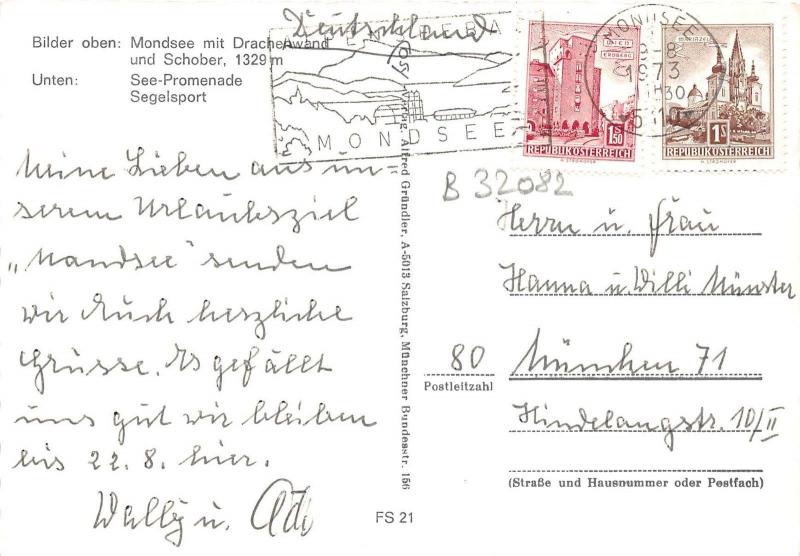 Bilder oben: Mondsee mit Drachenwand
und Schober, 1329 m
Unten: See-Promenade
Segelsport
Deutschland
MONDSEE
WIEN
ERDBERG
1S50
REPUBLIK ÖSTERREICH
MONDSEE
1973
MARIAZELL
1S
REPUBLIK ÖSTERREICH
B 32082
Meine Lieben aus un-
serem Urlaubsziel
„Mondsee" senden
wir Euch herzliche
Grüsse. Es gefällt
uns gut wir bleiben
bis 22.8. hier.
Wally u. Adi
Verlag: Alfred Gründler, A-5013 Salzburg, Münchner Bundesstr. 156
FS 21
Herrn u. Frau
Hanna u. Willi Münster
80 München 71
Postleitzahl
Hindelangstr. 10/II
(Straße und Hausnummer oder Postfach)